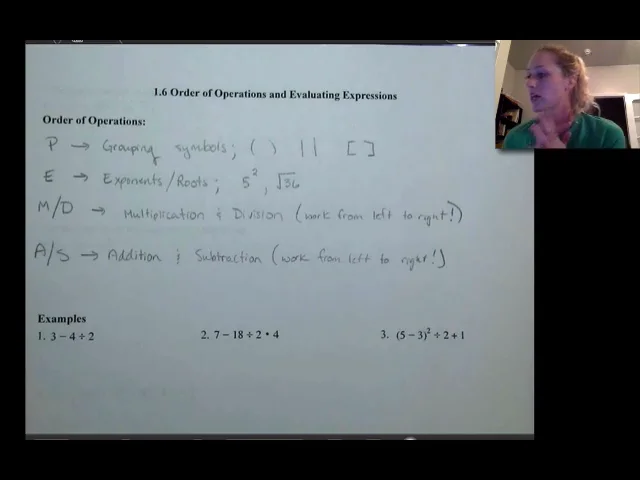 1.6 Order of Operations and Evaluating Expressions
Order of Operations:
P → Grouping symbols; ( ) | | [ ]
E → Exponents/Roots; 5², √36
M/D → Multiplication & Division (work from left to right!)
A/S → Addition & Subtraction (work from left to right!)
Examples
1. 3 − 4 ÷ 2 2. 7 − 18 ÷ 2 • 4 3. (5 − 3)² ÷ 2 + 1